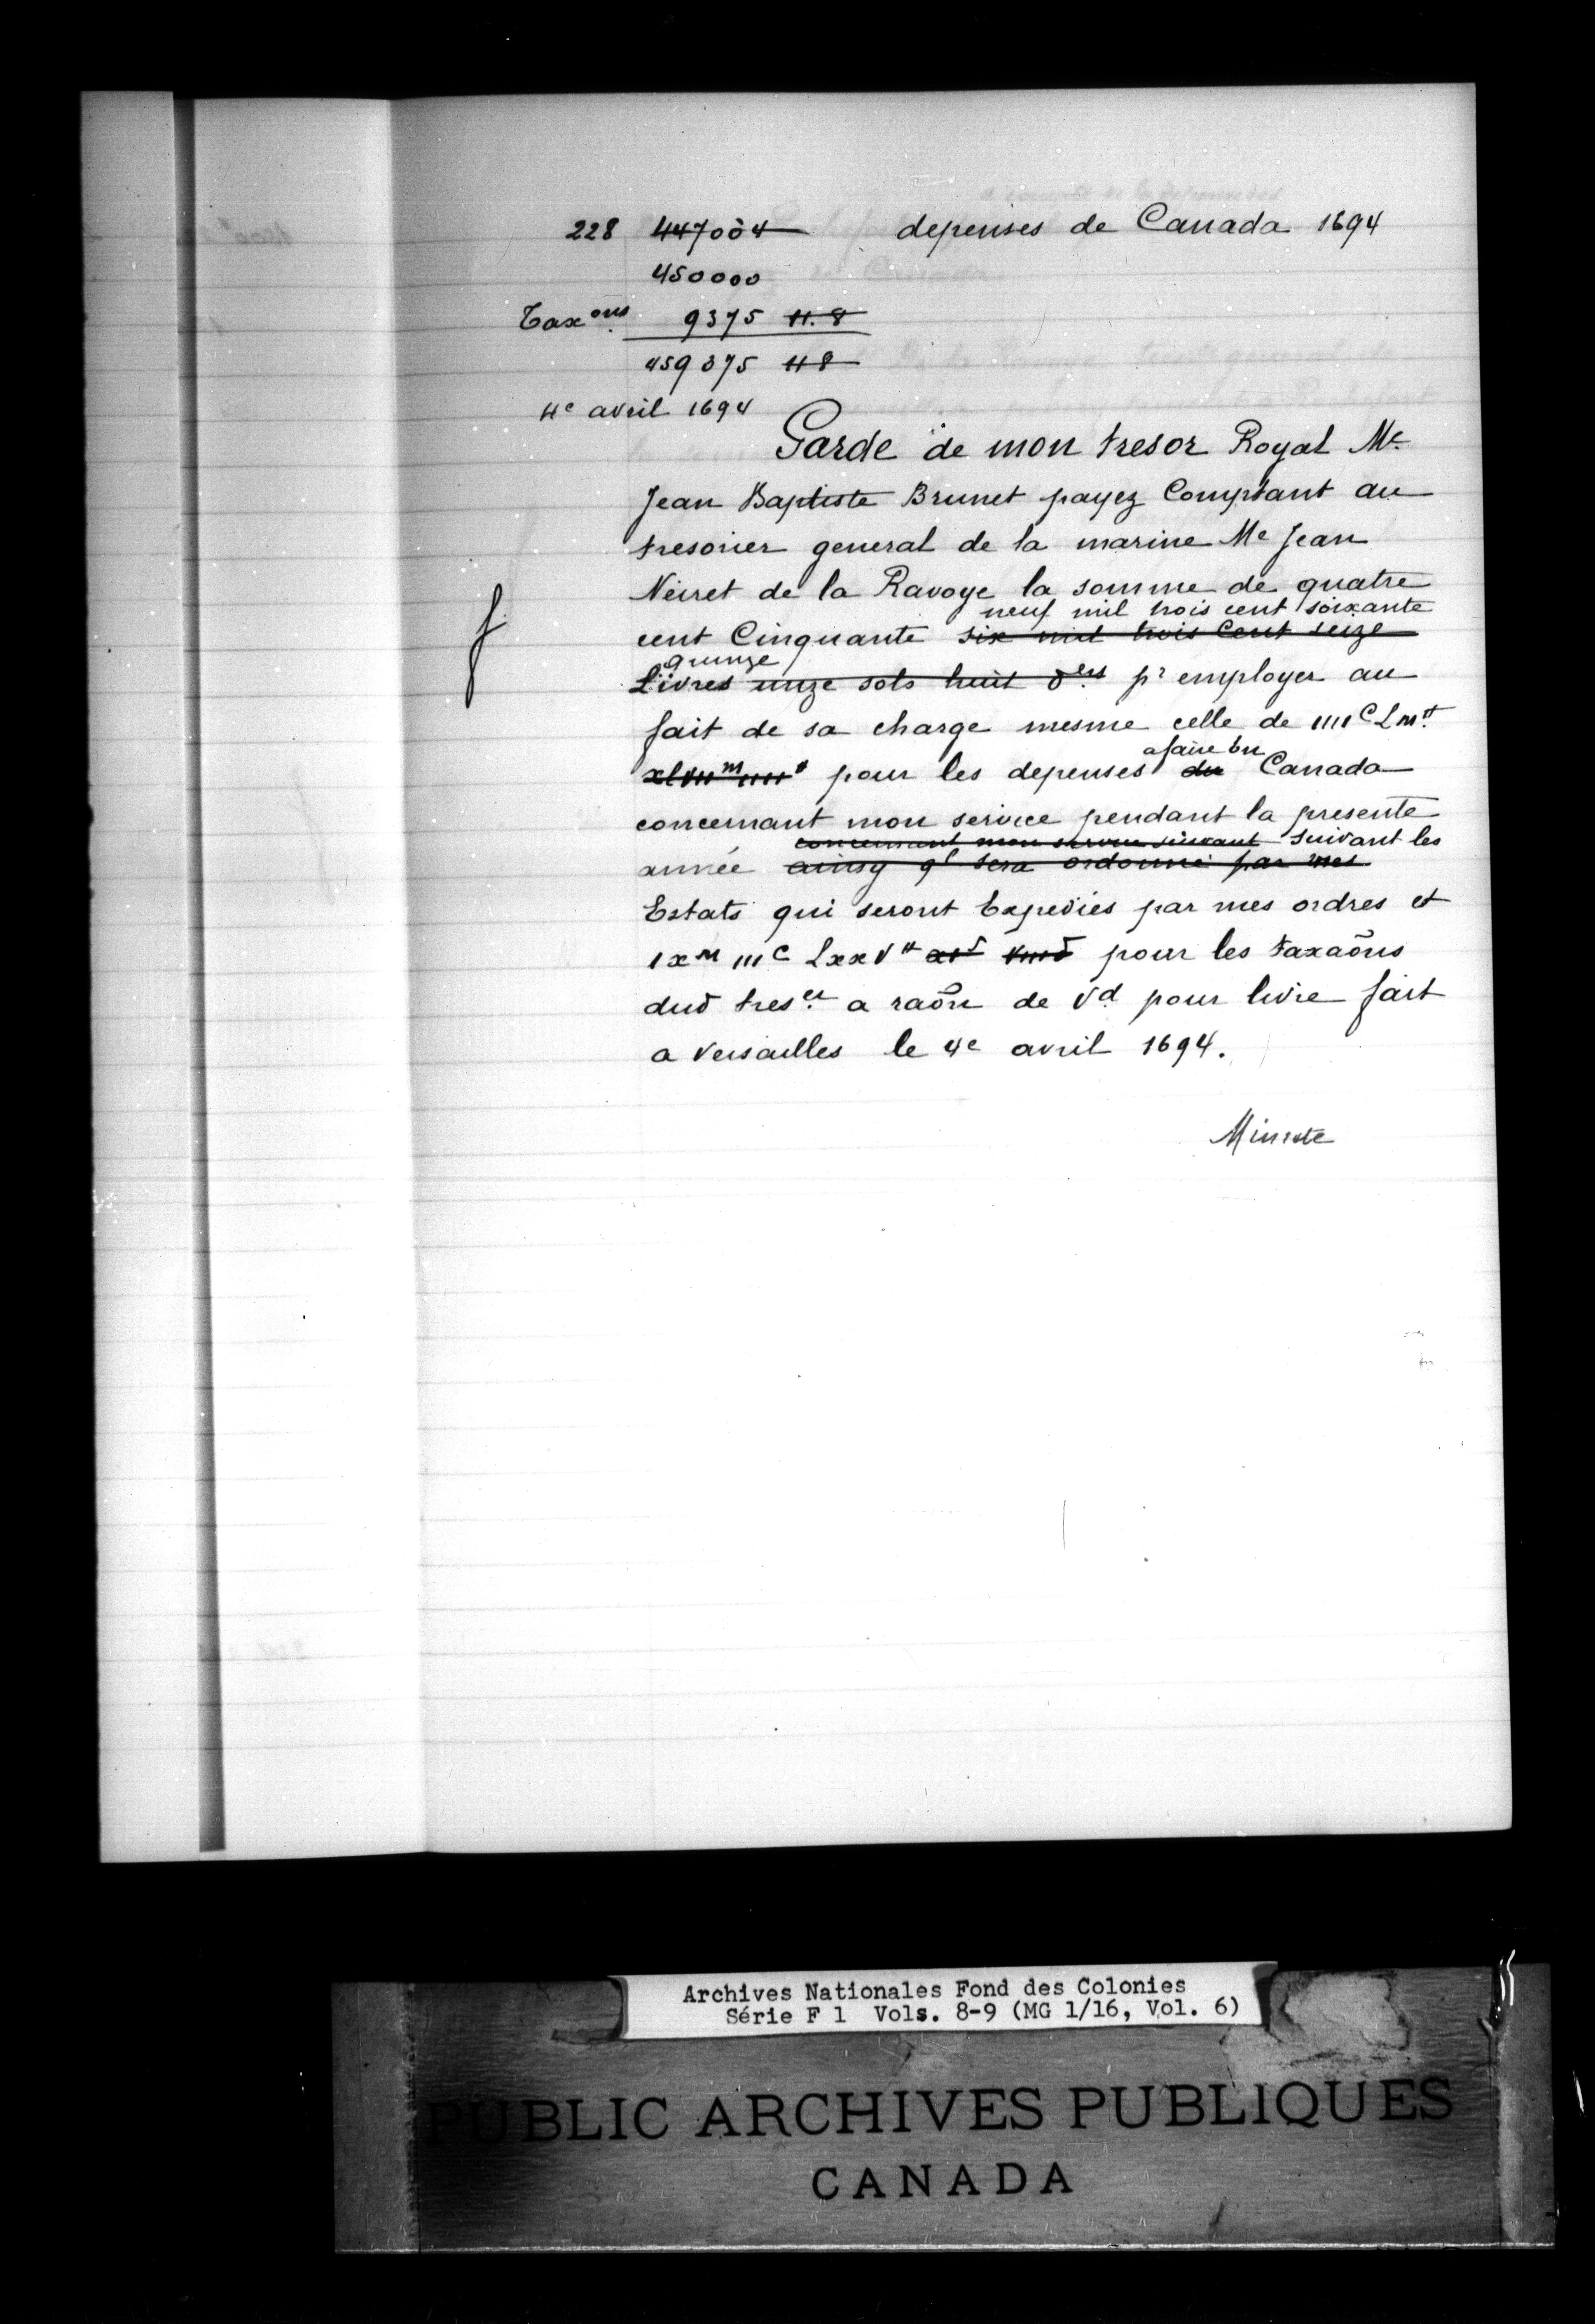 228 447004 depenses de Canada 1694
450000
Taxons 9375 11.8
459375 11 8
4e avril 1694
Garde de mon tresor Royal Me
Jean Baptiste Brunet payez Comptant au
tresorier general de la marine Me Jean
Neiret de la Ravoye la somme de quatre
neuf mil trois cent soixante
cent Cinquante six mil trois Cent seize
quinze
Livres unze sols huit ders pr employer au
fait de sa charge mesme celle de IIIIc Lm#
a faire En
xlviimiiii# pour les depenses du Canada
concernant mon service pendant la presente
concernant mon service suivant suivant les
année ainsy ql sera ordonné par mes
Estats qui seront Expediés par mes ordres et
ixm iiic Lxxv# xis viiid pour les taxaõns
dud treser a raõn de vd pour livre fait
a Versailles le 4e avril 1694.
Minute
Archives Nationales Fond des Colonies
Série F 1 Vols. 8-9 (MG 1/16, Vol. 6)
PUBLIC ARCHIVES PUBLIQUES
CANADA